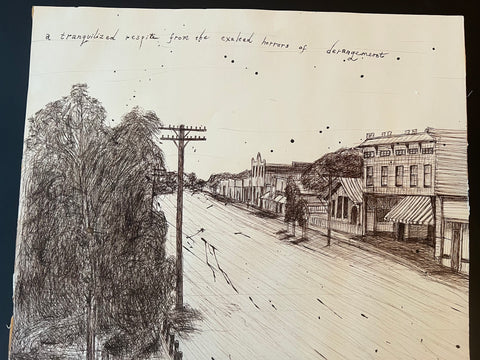 a tranquilized respite from the exaled horrors of derangements